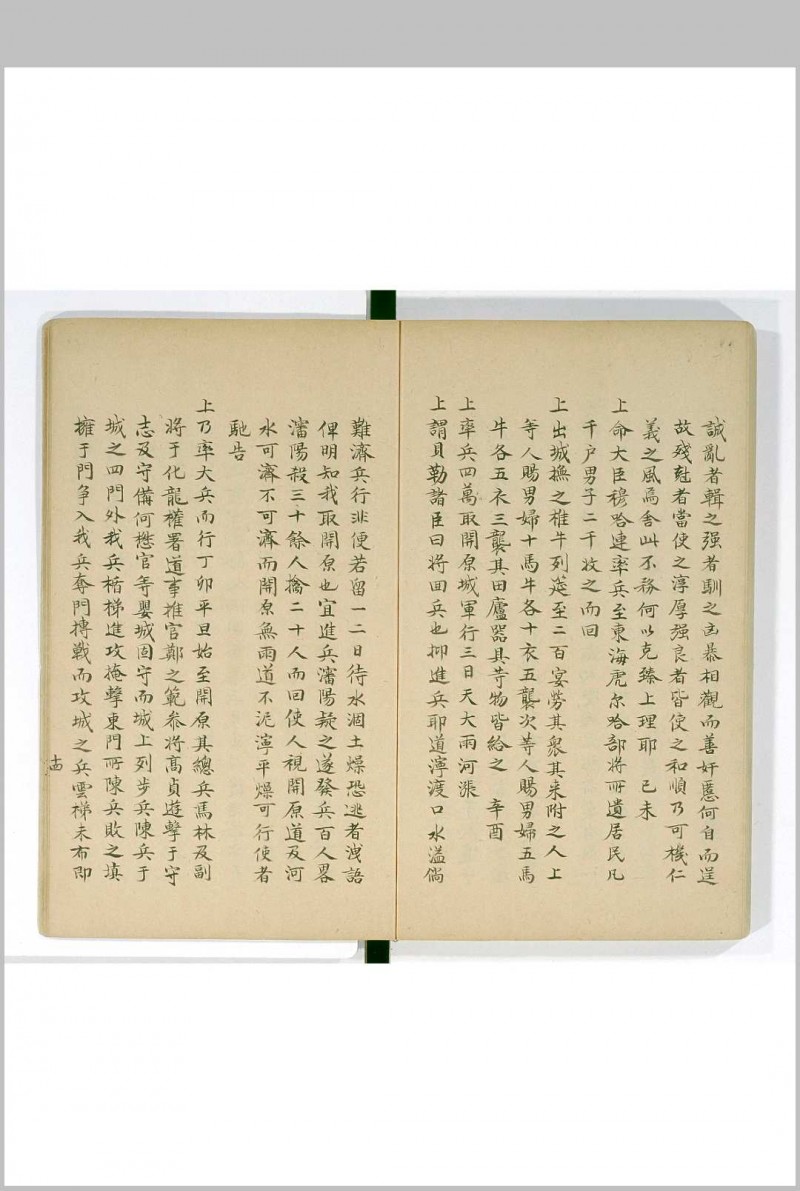 誠亂者輯之强者馴之囟暴相觀而善奸慝何自而逞
故殘尅者當使之淳厚强良者皆使之和順乃可機仁
義之風焉舍此不務何以克臻上理耶 己未
上命大臣穆哈連率兵至東海虎尔哈部將所遺居民凡
千户男子二千收之而回
上出城撫之椎牛列筵至二百宴勞其衆其来附之人上
等人賜男婦十馬牛各十衣五襲次等人賜男婦五馬
牛各五衣三襲其田廬器具等物皆給之 辛酉
上率兵四萬取開原城軍行三日天大雨河漲
上謂貝勒諸臣曰將回兵也抑進兵耶道濘渡口水溢倘
難濟兵行非便若留一二日待水涸土燥恐逃者洩語
俾明知我取開原也宜進兵瀋陽疑之遂發兵百人畧
瀋陽殺三十餘人擒二十人而回使人視開原道及河
水可濟不可濟而開原無雨道不泥濘平燥可行使者
馳告
上乃率大兵而行丁卯平旦始至開原其總兵馬林及副
將于化龍權署道事推官鄭之範叅將髙貞遊擊于守
志及守備何懋官等嬰城固守而城上列步兵陳兵于
城之四門外我兵楯梯進攻掩擊東門所陳兵敗之填
擁于門争入我兵奪門搏戰而攻城之兵雲梯未布即
十四